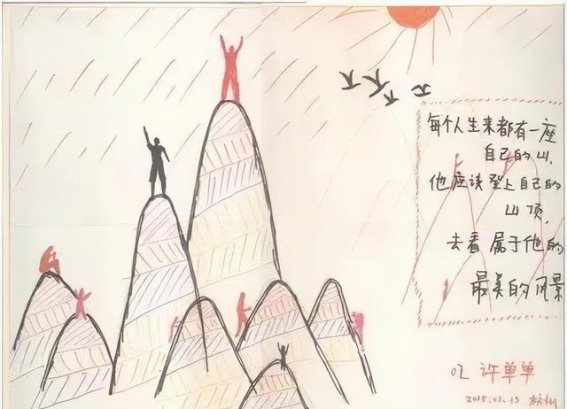 每个人生来都有一座
自己的山,
他应该登上自己的
山顶,
去看属于他的
最美的风景
02 许单单
2015.11.13 杭州